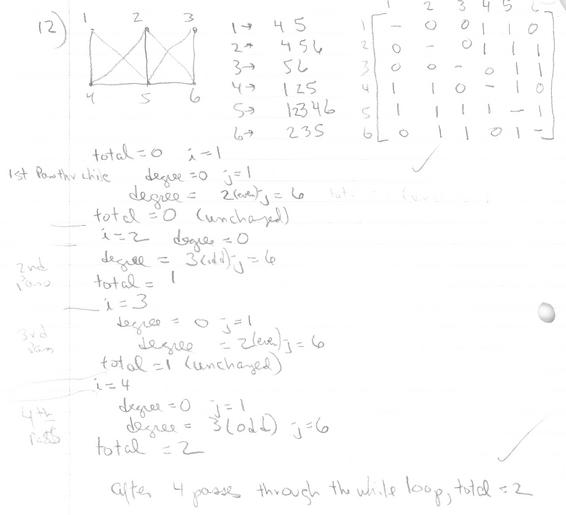 12)
1 2 3
4 5 6
1→ 4 5
2→ 4 5 6
3→ 5 6
4→ 1 2 5
5→ 1 2 3 4 6
6→ 2 3 5
1 2 3 4 5 6
1 - 0 0 1 1 0
2 0 - 0 1 1 1
3 0 0 - 0 1 1
4 1 1 0 - 1 0
5 1 1 1 1 - 1
6 0 1 1 0 1 -
total=0 i=1
1st Pass thru while degree=0 j=1
degree = 2(even) j=6
total=0 (unchanged)
i=2 degree=0
degree = 3(odd) j=6
2nd Pass
total = 1
i=3
degree = 0 j=1
3rd Pass
degree = 2(even) j=6
total=1 (unchanged)
i=4
degree=0 j=1
4th pass
degree = 3(odd) j=6
total = 2
after 4 passes through the while loop, total = 2